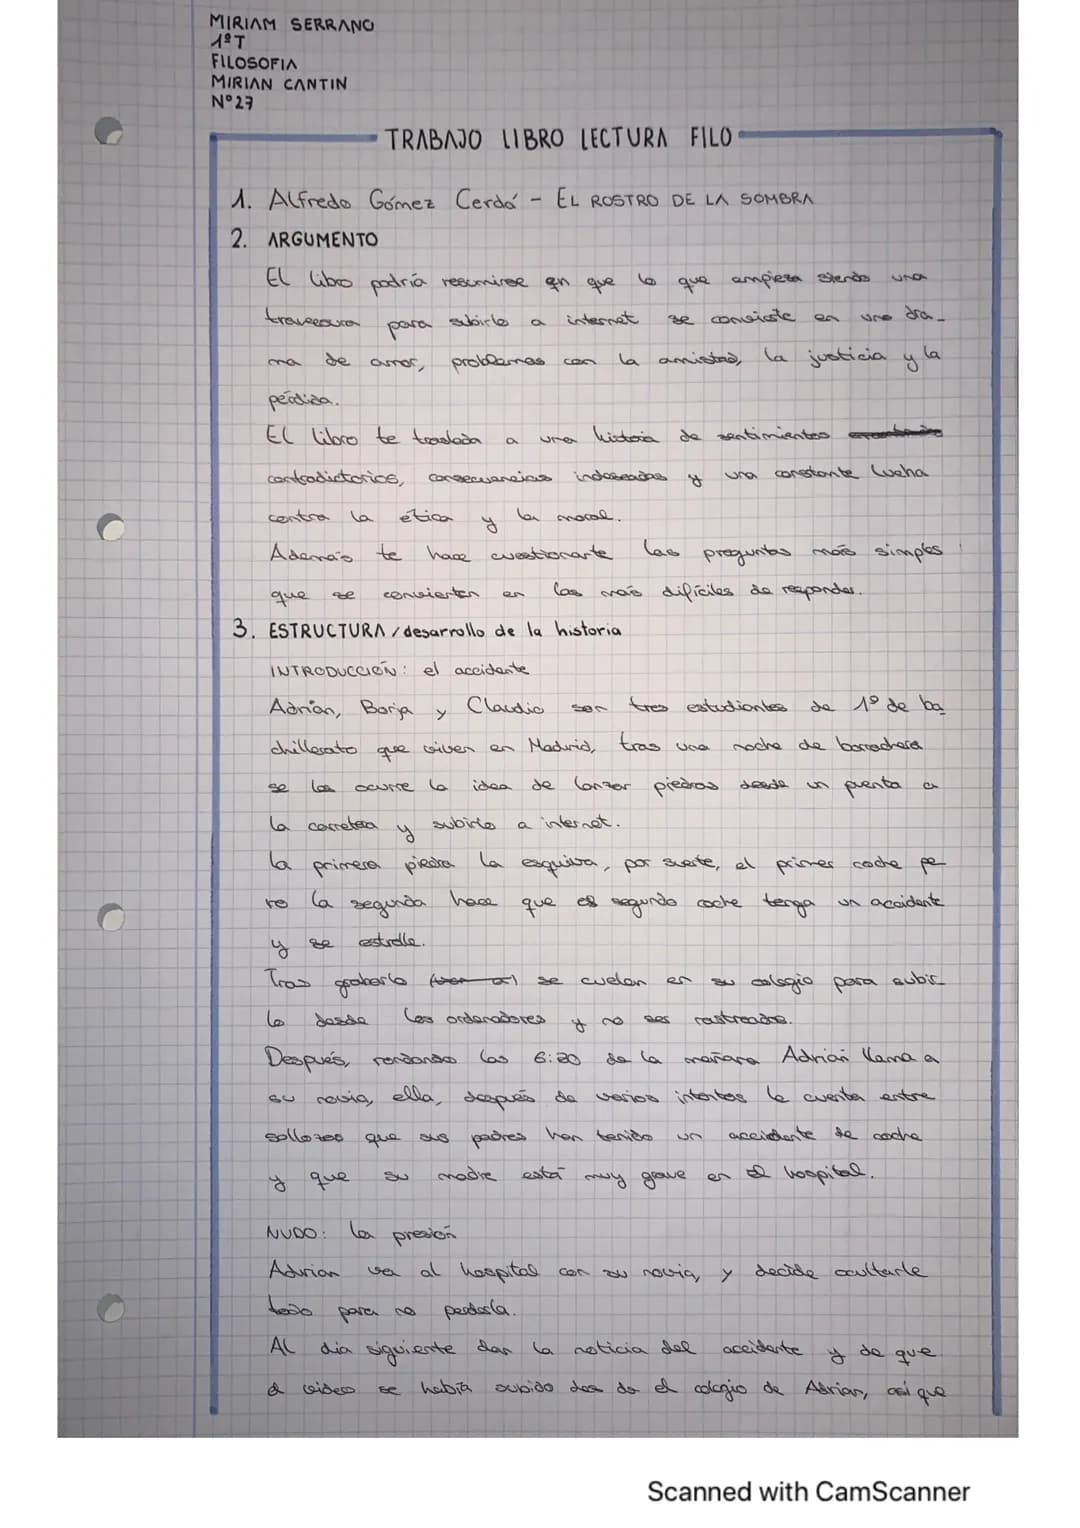 MIRIAM SERRANO
1ºT
FILOSOFIA
MIRIAN CANTIN
Nº27
TRABAJO LIBRO LECTURA FILO
1. Alfredo Gómez Cerdá - EL ROSTRO DE LA SOMBRA
2. ARGUMENTO
El libro podría resumirse en que lo que empieza siendo una
travesura para subirlo a internet se convierte en una dra-
ma de amor, problemas con la amistad, la justicia y la
pérdida.
El libro te traslada a una historia de sentimientos
contradictorios, consecuencias indeseadas y una constante lucha
contra la ética y la moral.
Además te hace cuestionarte las preguntas más simples
que se convierten en las más difíciles de responder.
3. ESTRUCTURA / desarrollo de la historia
INTRODUCCIÓN: el accidente
Adrián, Borja y Claudio son tres estudiantes de 1º de ba
chillerato que viven en Madrid, tras una noche de borrachera
se les ocurre la idea de lanzar piedras desde un puente a
la carretera y subirlo a internet.
la primera piedra la esquiva, por suerte, el primer coche pe
ro la segunda hace que el segundo coche tenga un accidente
y se estrelle.
Tras grabarlo se cuelan en su colegio para subir-
lo desde los ordenadores y no ser rastreados.
Después, rondando las 6:20 de la mañana Adrián llama a
su novia, ella, después de varios intentos le cuenta entre
sollozos que sus padres han tenido un accidente de coche
y que su madre está muy grave en el hospital.
NUDO: la presión
Adrian va al hospital con su novia, y decide ocultarle
todo para no perderla.
Al dia siguiente dan la noticia del accidente y de que
el video se había subido des de el colegio de Adrian, así que
Scanned with CamScanner